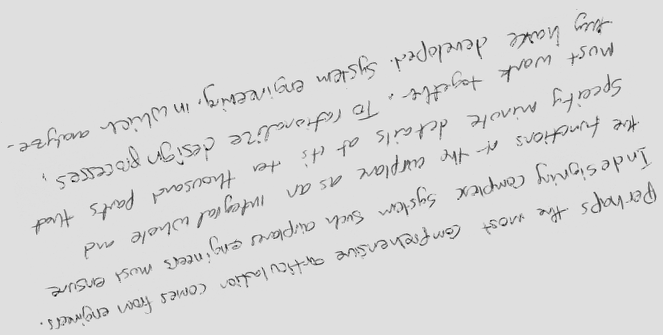 Perhaps the most comprehensive articulation comes from engineers.
Indesigning complex system such airplanes engineers must ensure
the functions of the airplane as an integral whole and
Specify minute details of it's ten thousand parts that
must work together. To rationalize design processes,
they have developed. System engineering, in which analyze-